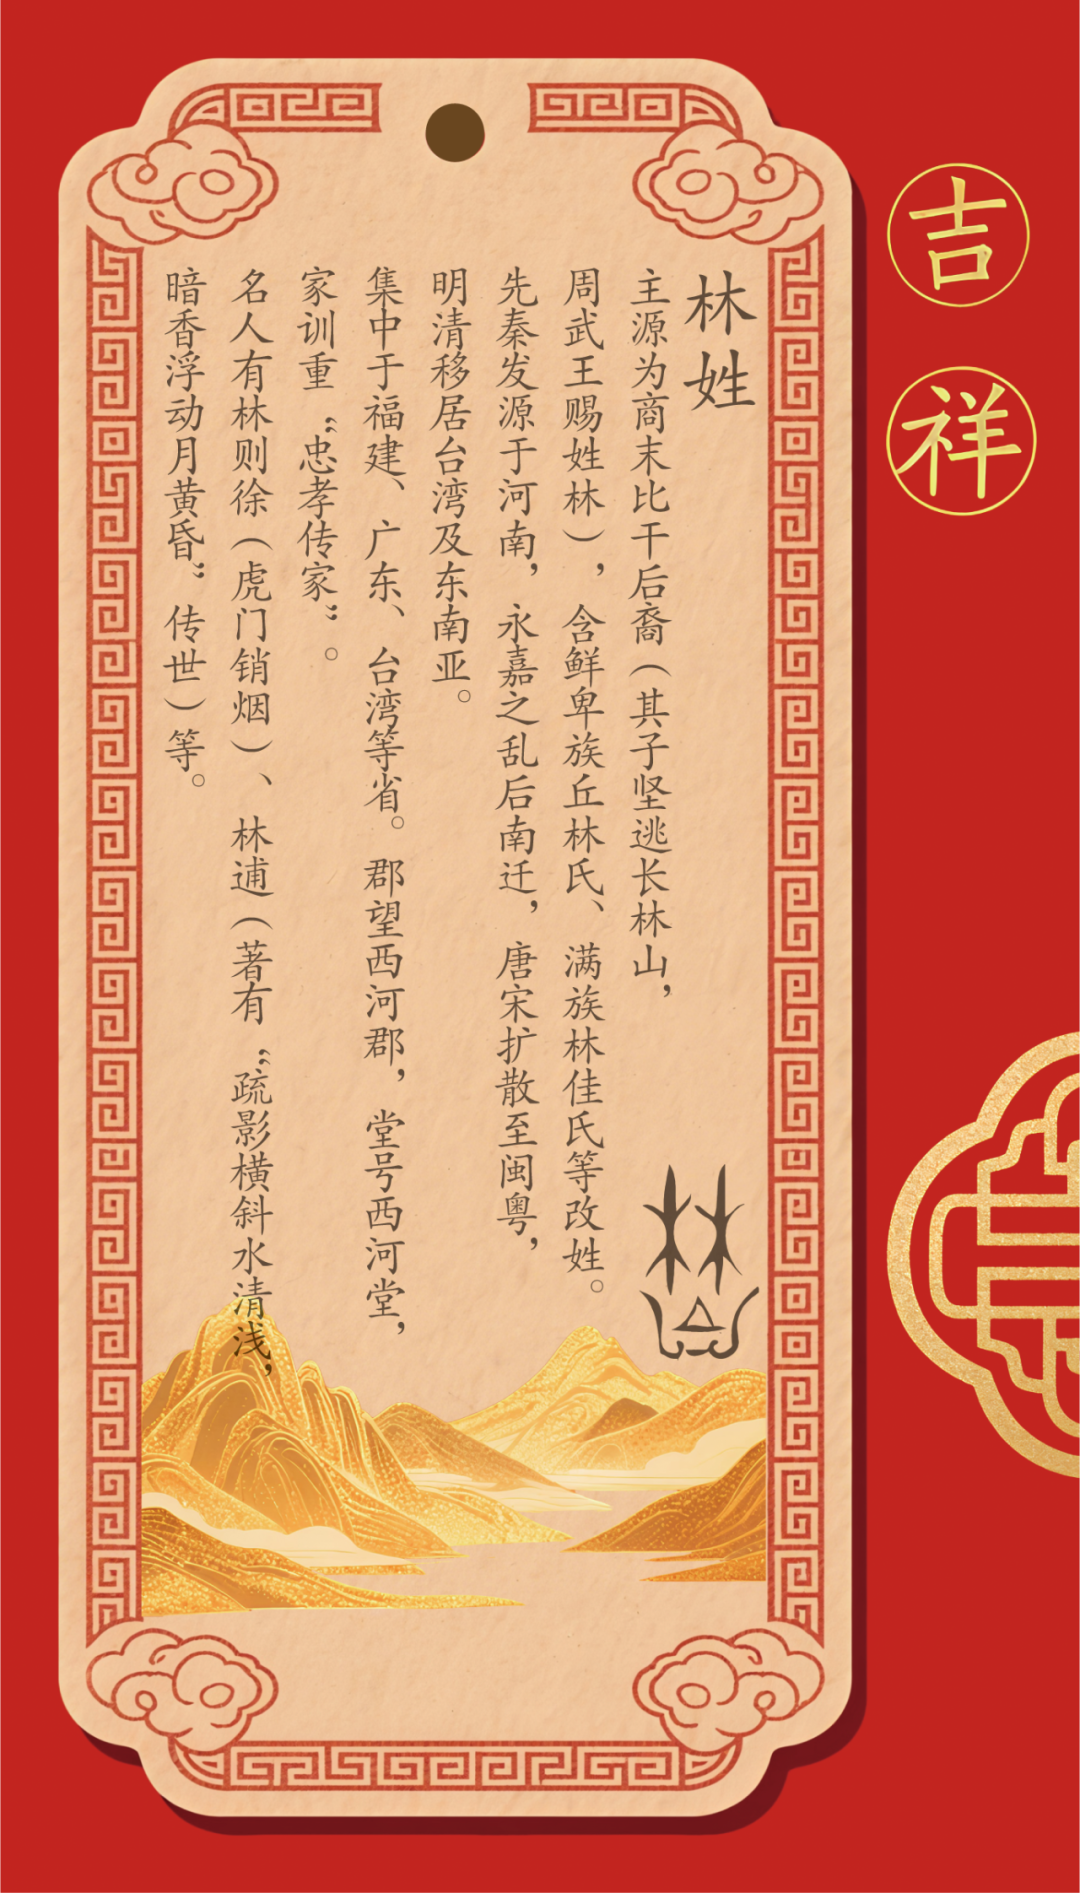 吉祥
林姓
主源为商末比干后裔（其子坚逃长林山，
周武王赐姓林），含鲜卑族丘林氏、满族林佳氏等改姓。
先秦发源于河南，永嘉之乱后南迁，唐宋扩散至闽粤，
明清移居台湾及东南亚。
集中于福建、广东、台湾等省。郡望西河郡，堂号西河堂，
家训重“忠孝传家”。
名人有林则徐（虎门销烟）、林逋（著有“疏影横斜水清浅，
暗香浮动月黄昏”传世）等。